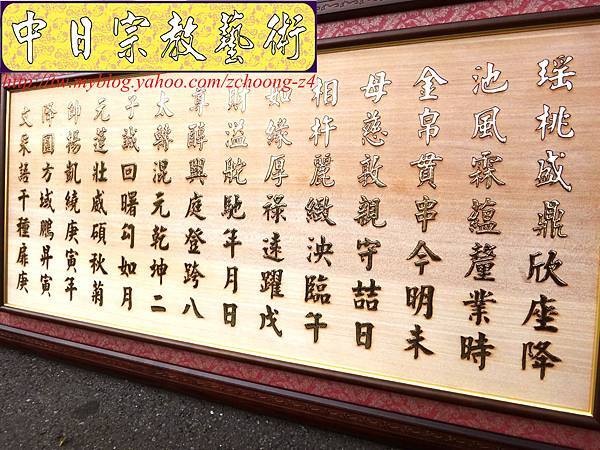 中日宗教藝術
http://tw.myblog.yahoo.com/zchoong-z4
瑶桃盛鼎欣座降
池風霖蘊釐業時
金帛貫串今明未
母慈敦親守喆日
相杵麗緻泱臨午
如緣厚祿遠躍戊
財溢舵馳年月日
尊醇與庭登跨八
太馥混元乾坤二
子誠回曙勾如月
元蓮壯威碩秋菊
帥揚凱繞庚寅年
降園方域鵬昇寅
文采語干種扉庚